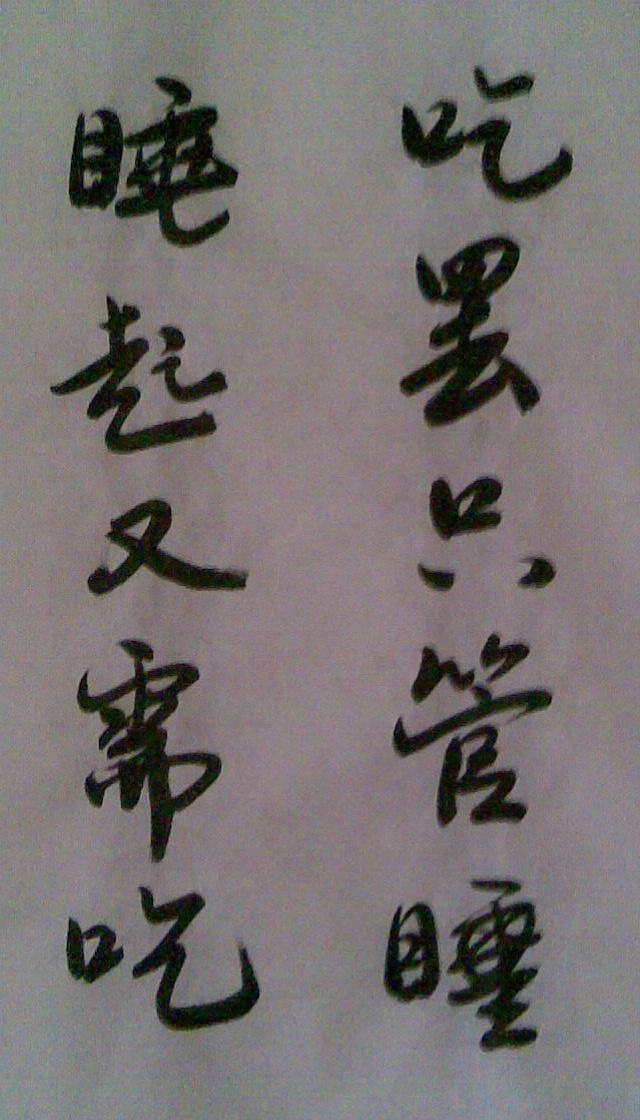 吃罢只管睡
睡起又需吃